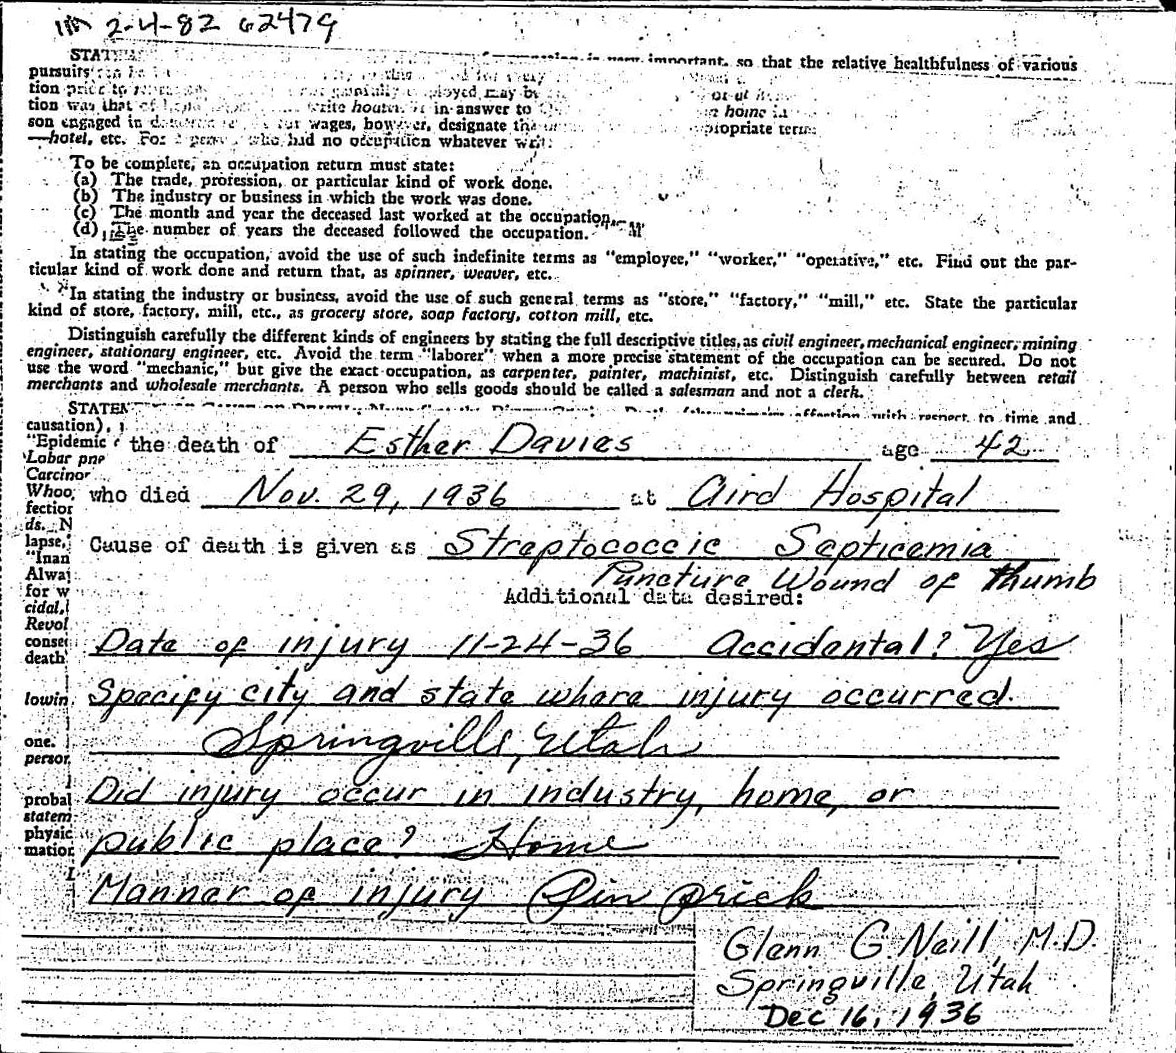 2-4-82 62479
important, so that the relative healthfulness of various
pursuits
tion prior to may be
tion was that of write in answer to home
son engaged in wages, however, designate the appropriate term
—hotel, etc. For a person who had no occupation whatever
To be complete, an occupation return must state:
(a) The trade, profession, or particular kind of work done.
(b) The industry or business in which the work was done.
(c) The month and year the deceased last worked at the occupation.
(d) The number of years the deceased followed the occupation.
In stating the occupation, avoid the use of such indefinite terms as "employee," "worker," "operative," etc. Find out the par-
ticular kind of work done and return that, as spinner, weaver, etc.
In stating the industry or business, avoid the use of such general terms as "store," "factory," "mill," etc. State the particular
kind of store, factory, mill, etc., as grocery store, soap factory, cotton mill, etc.
Distinguish carefully the different kinds of engineers by stating the full descriptive titles, as civil engineer, mechanical engineer, mining
engineer, stationary engineer, etc. Avoid the term "laborer" when a more precise statement of the occupation can be secured. Do not
use the word "mechanic," but give the exact occupation, as carpenter, painter, machinist, etc. Distinguish carefully between retail
merchants and wholesale merchants. A person who sells goods should be called a salesman and not a clerk.
with respect to time and
causation),
"Epidemic the death of Esther Davies age 42
Lobar pne
Carcinor
Whoo, who died Nov. 29, 1936 at Aird Hospital
fection
ds. N
lapse, Cause of death is given as Streptococcic Septicemia
"Inan
Puncture Wound of thumb
Alwa
for w Additional data desired:
cidal,
Revol
conse Date of injury 11-24-36 Accidental? Yes
death
lowin Specify city and state where injury occurred.
one. Springville, Utah
person
probal Did injury occur in industry, home, or
statem
physic public place? Home
mation
Manner of injury Pin prick
Glenn G. Neill, M.D.
Springville, Utah
Dec 16, 1936